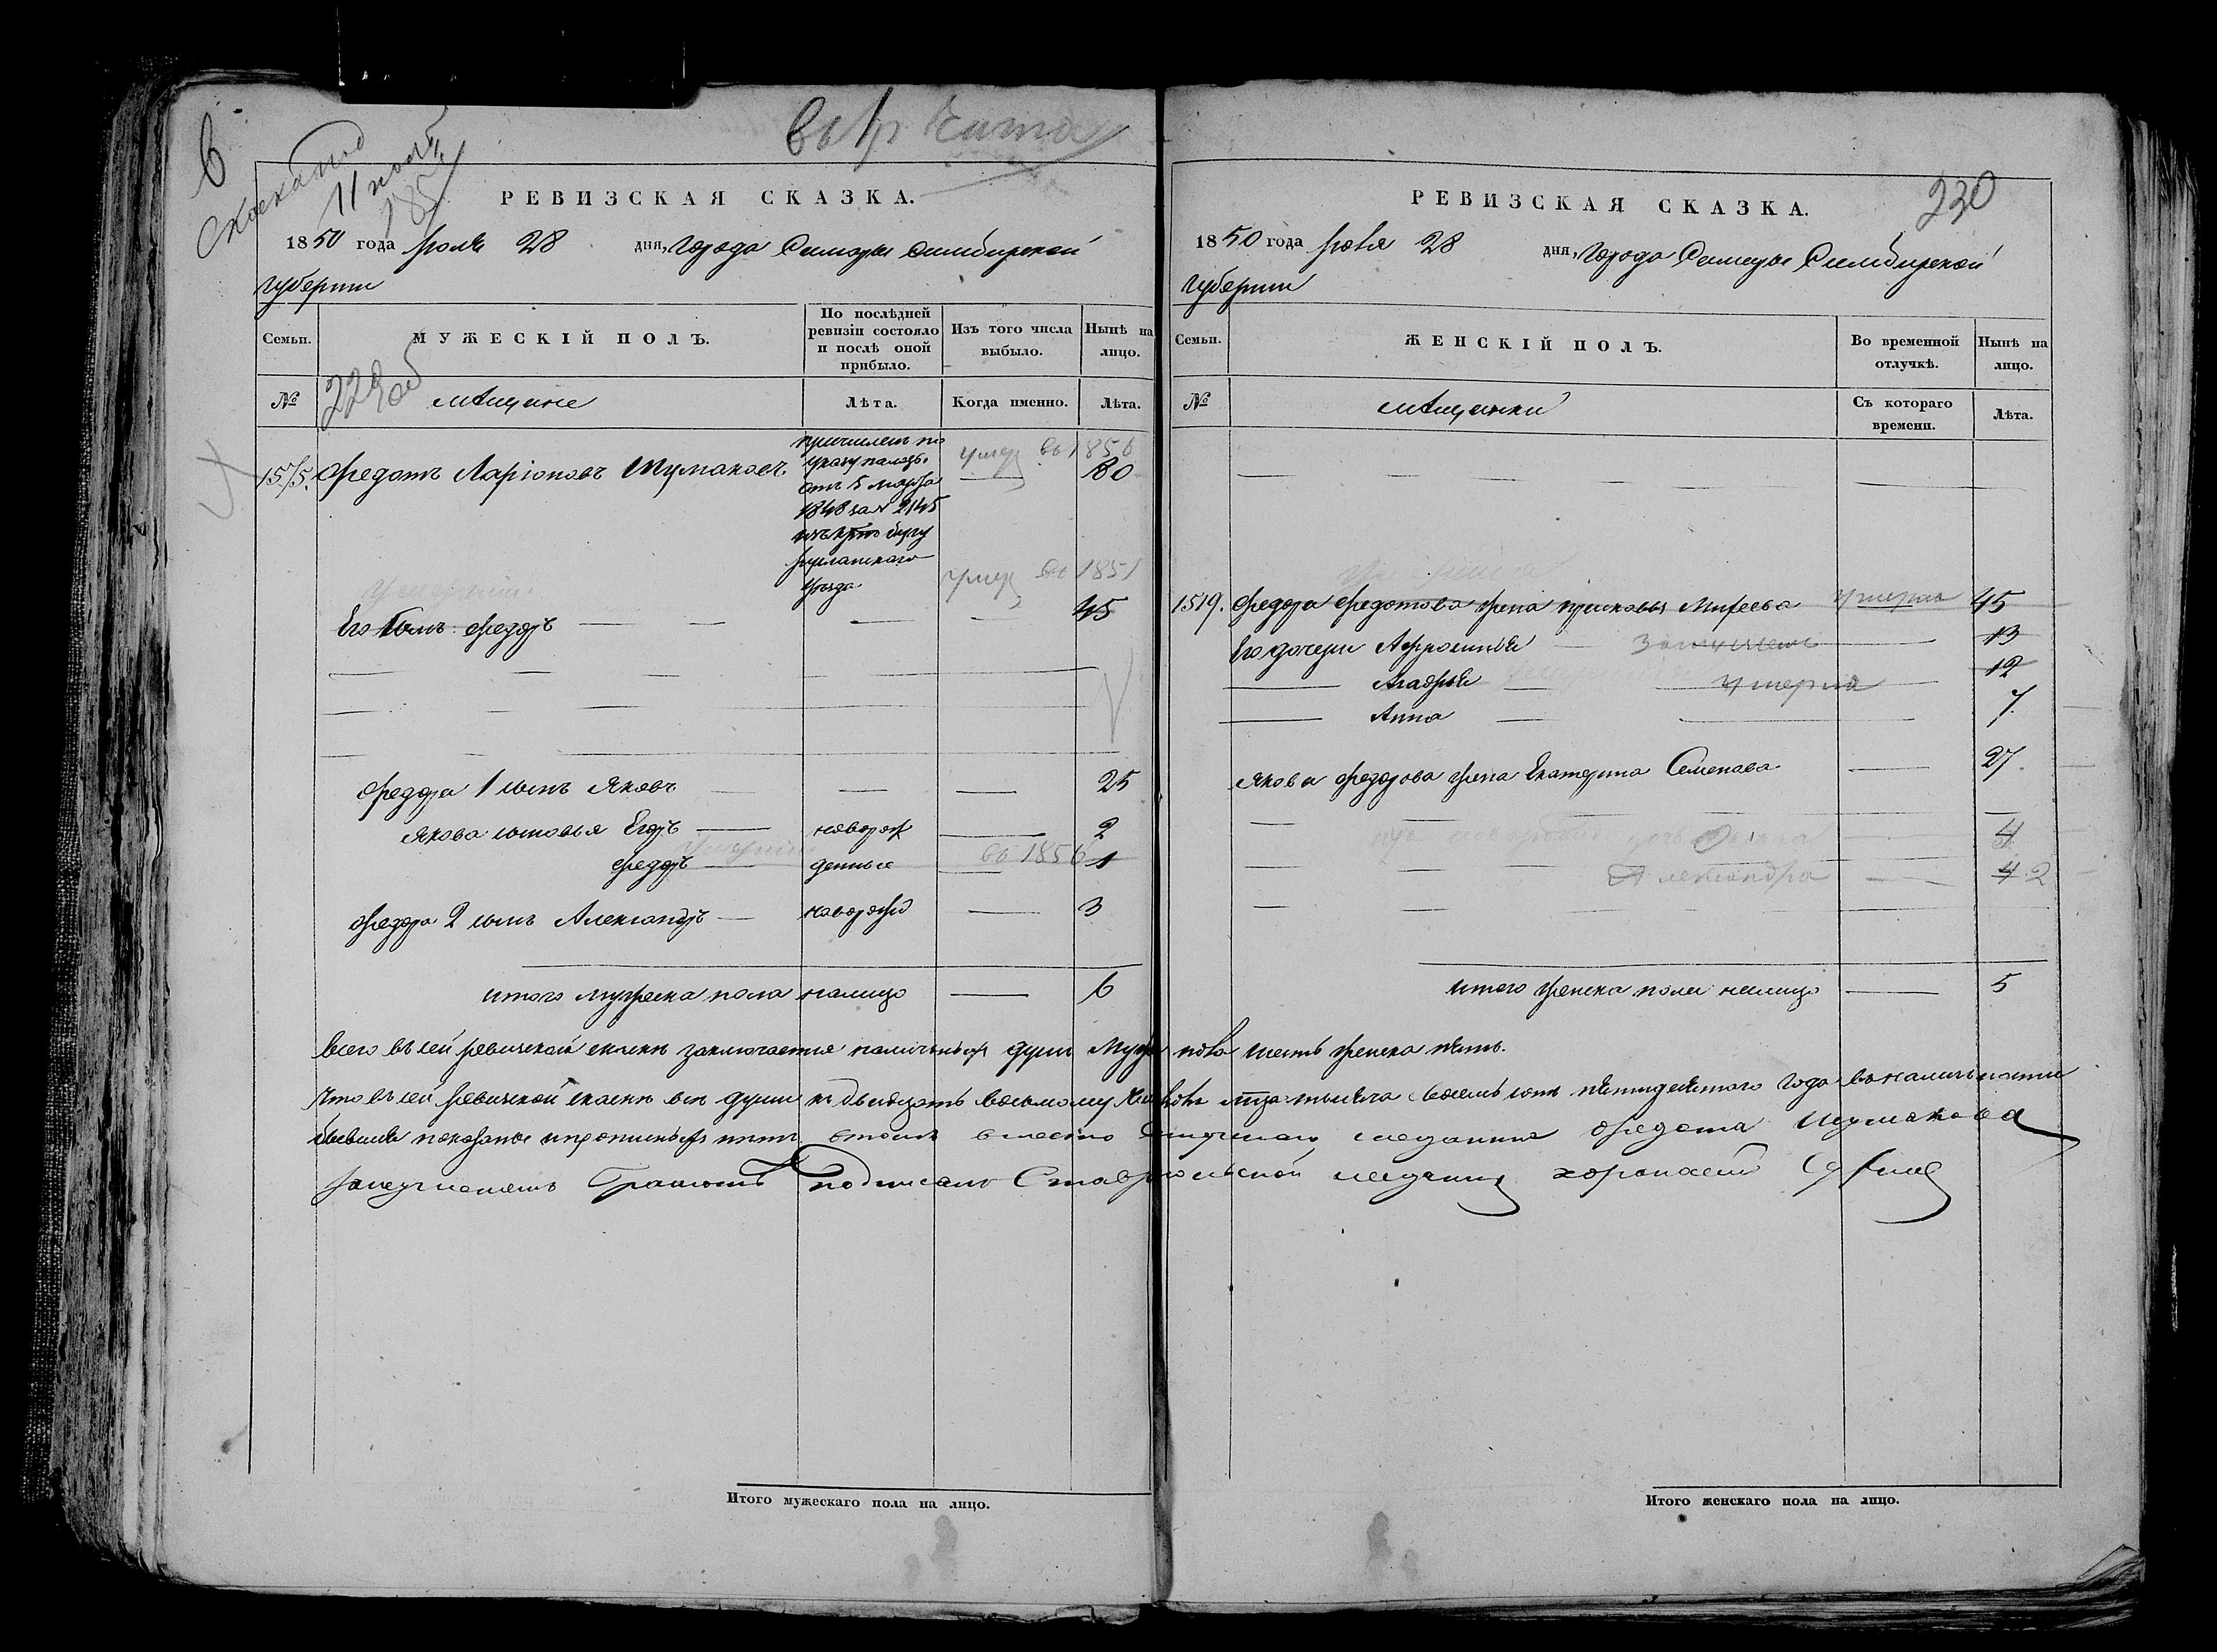 6
11 нояб
230
РЕВИЗСКАЯ СКАЗКА.
1850 года Іюля 28 дня, Города Самары Симбирской
Губерніи
Семьи.
МУЖЕСКІЙ ПОЛЪ.
По послѣдней ревизіи состояло и послѣ оной прибыло.
Изъ того числа выбыло.
Нынѣ на лицо.
№
229об
мѣщане
Лѣта.
Когда именно.
Лѣта.
1575. Федотъ Ларіоновъ Шумаковъ
причисленъ по
указу палаты
отъ 5 марта
1848 за № 2145
уѣзда
умер въ 1856
80
умер въ 1851
Его сынъ Федоръ
45
Федора 1 сынъ Яковъ 25
Якова сыновья Егоръ новорож 2
Федоръ денные въ 1856 1
Федора 2 сынъ Александръ новорожд 3
итого мужеска пола налицо 6
РЕВИЗСКАЯ СКАЗКА.
1850 года Іюля 28 дня, Города Самары Симбирской
Губерніи
Семьи.
ЖЕНСКІЙ ПОЛЪ.
Во временной отлучкѣ.
Нынѣ на лицо.
№
мѣщанки
Съ котораго времени.
Лѣта.
1519. Федора Федотова жена Прасковья Мих\еева умерла 45
Его дочери Афросинья 13
умерла 12
Анна 7
Якова Федорова жена Екатерина Семенова 27
4
Александра 4 2
итого женска пола налицо 5
Всего въ сей ревизской сказке заключается наличныхъ душъ Муж пола шесть женска пять.
Что въ сей ревизской сказке все души къ двадцать восьмому Іюля тысяча восемь сотъ пятидесятаго года въ наличности
бывшія показаны и прописныхъ нетъ въ томъ вместо мещанина Федота Шумакова
Грамоте подписалъ Ставропольской мещанинъ
Итого мужескаго пола на лицо.
Итого женскаго пола на лицо.